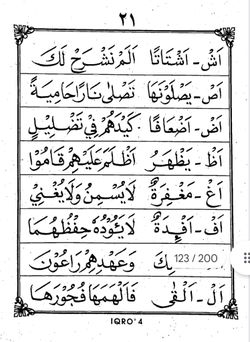 ٢١
اَشْ - اَشْتَاتًا اَلَمْ نَشْرَحْ لَكَ
اَصْ - يَصْلَوْنَهَا تَصْلٰى نَارًا حَامِيَةً
اَضْ - اَضْعَافًا كَيْدَهُمْ فِيْ تَضْلِيْلٍ
اَظْ - يَظْهَرُ اَظْلَمَ عَلَيْهِمْ قَامُوْا
اَغْ - مَغْفِرَةٌ لَايُسْمِنُ وَلَايُغْنِيْ
اَفْ - اَفْـِٕدَةٌ لَايَـُٔوْدُهٗ حِفْظُهُمَا
كَ وَعَهْدِهِمْ رَاعُوْنَ
123 / 200
اَلْ - اَلْقٰى فَاَلْهَمَهَا فُجُوْرَهَا
IQRO' 4